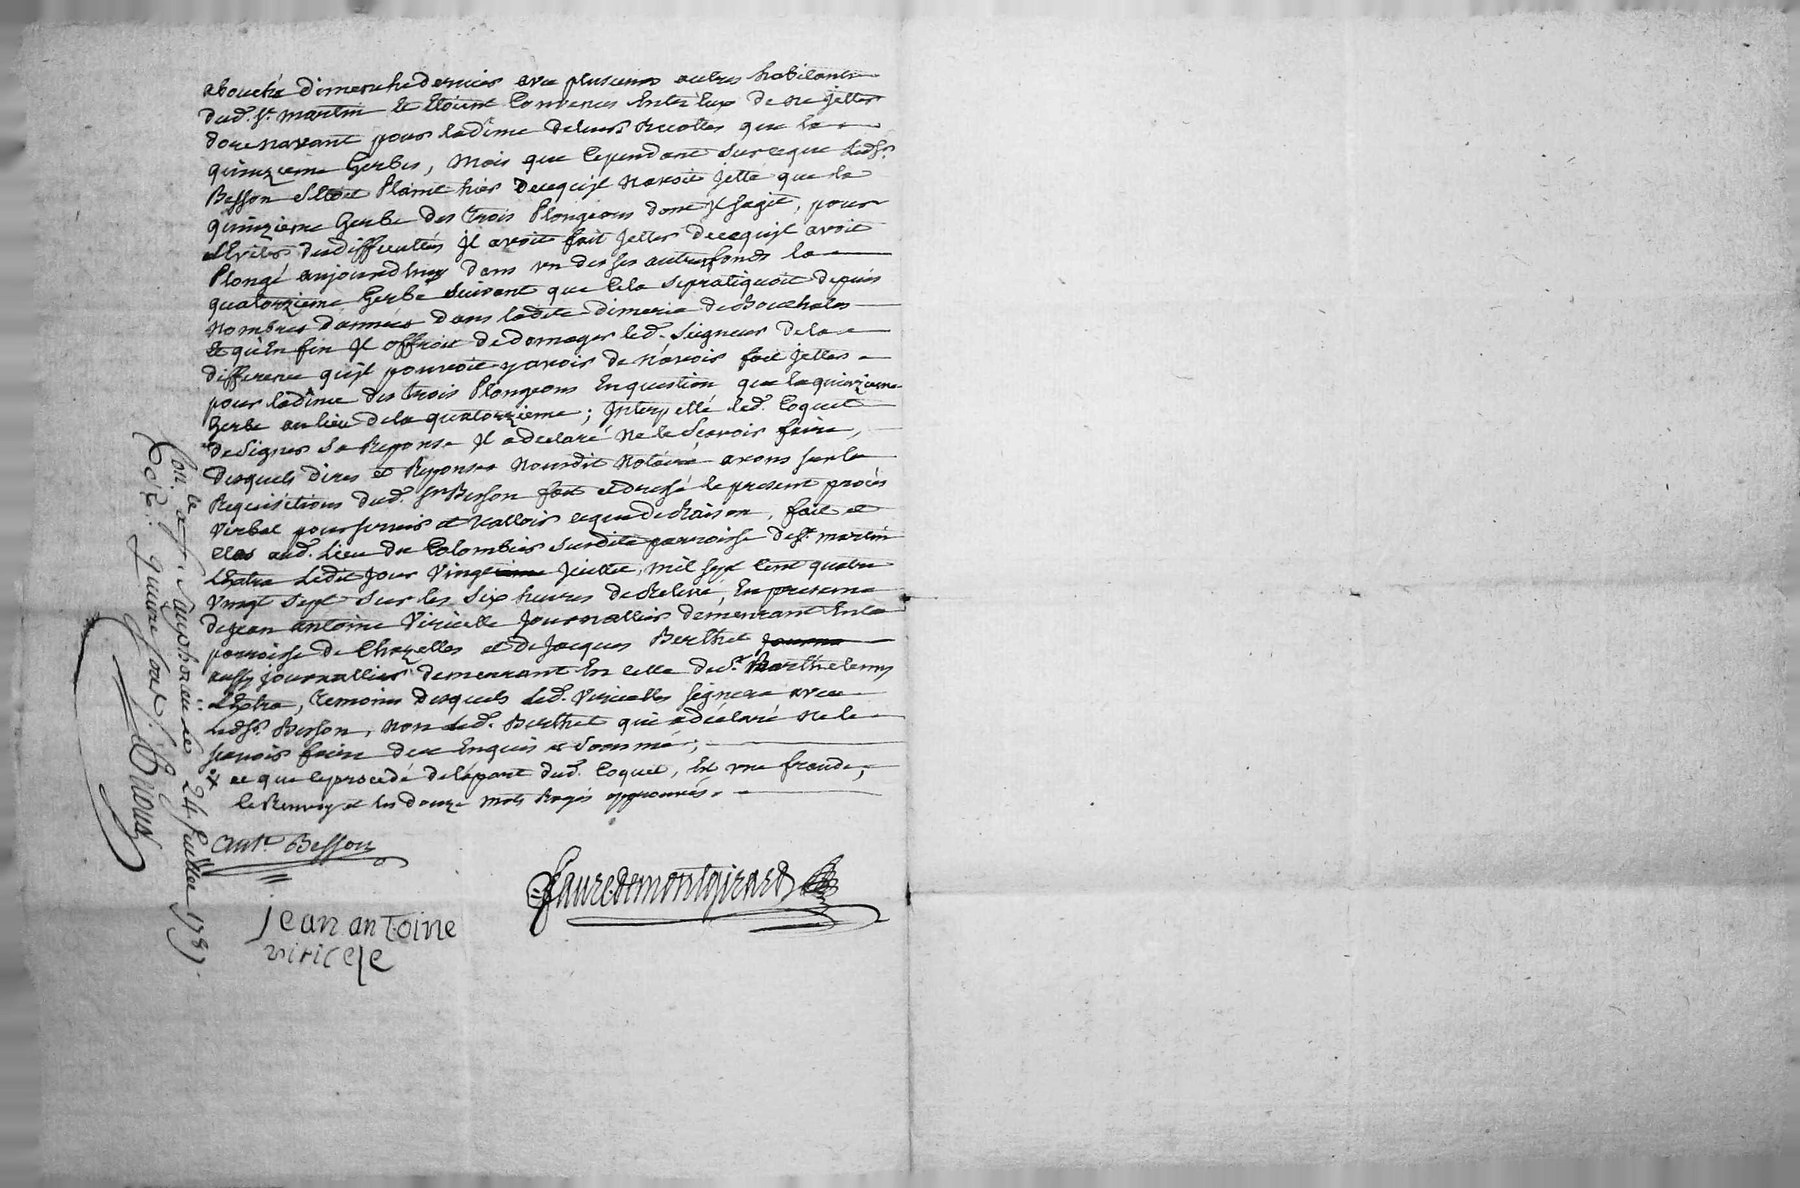 abouché dimenche dernier avec plusieurs autres habitants
dud. St. martin Et Etoient Convenus Entr'Eux de ne jetter
dorenavant pour la dime de leurs Recoltes que la
quinzieme Gerbes, mais que Cependant sur ce que led. Sr.
Besson s'Etoit Plaint hier de ce qu'jl n'avoit jetté que la
quinzieme Gerbe des trois Plongeons dont jl sagit, pour
Eviter des difficultés jl avoit fait jetter de ce qu'jl avoit
Plongé aujourd'huy dans un des ses autres fonds la
quatorzieme Gerbe suivant que Cela se pratiquoit depuis
nombres d'années dans ladite dimerie de Bouchalas
Et qu'En fin jl offroit dedomager led. Seigneur de la
difference qu'jl pourroit y avoir de n'avoir fait jetter
pour la dime des trois Plongeons En question que la quinzieme
Gerbe au lieu de la quatorzieme; jnterpellé led. Coquet
de signer sa Reponse jl a declaré ne le sçavoir faire,
desquels dires et Reponses nousdit notaire avons sur la
Requisitions dud. Sr. Besson fait et dressé le present procès
verbal pour servir et valloir ce que de Raison, fait et
clos aud. Lieu du Colombier susdite parroisse de St. martin
Lestra ledit jour vingt juillet, mil sept Cent quatre
vingt sept sur les six heures de Relevé, En presence
de jean antoine Viricelle journallier demeurant En la
parroisse de Chazelles et de jacques Berthet
aussy journallier demeurant En celle de St. Barthelemy
Lestra, temoins desquels led. Viricelle signera avec
led. Sr. Besson, non led. Berthet qui a déclaré ne le
sçavoir faire de ce Enquis et sommé;
x ce que le procedé de la part dud. Coquet, Est une fraude,
le Renvoy et les douze mots Rayés approuvés.
Ant. Besson
faure de montgirard
jean antoine
viricele
Con.lé a St. Simphorien le 24 juillet 1787.